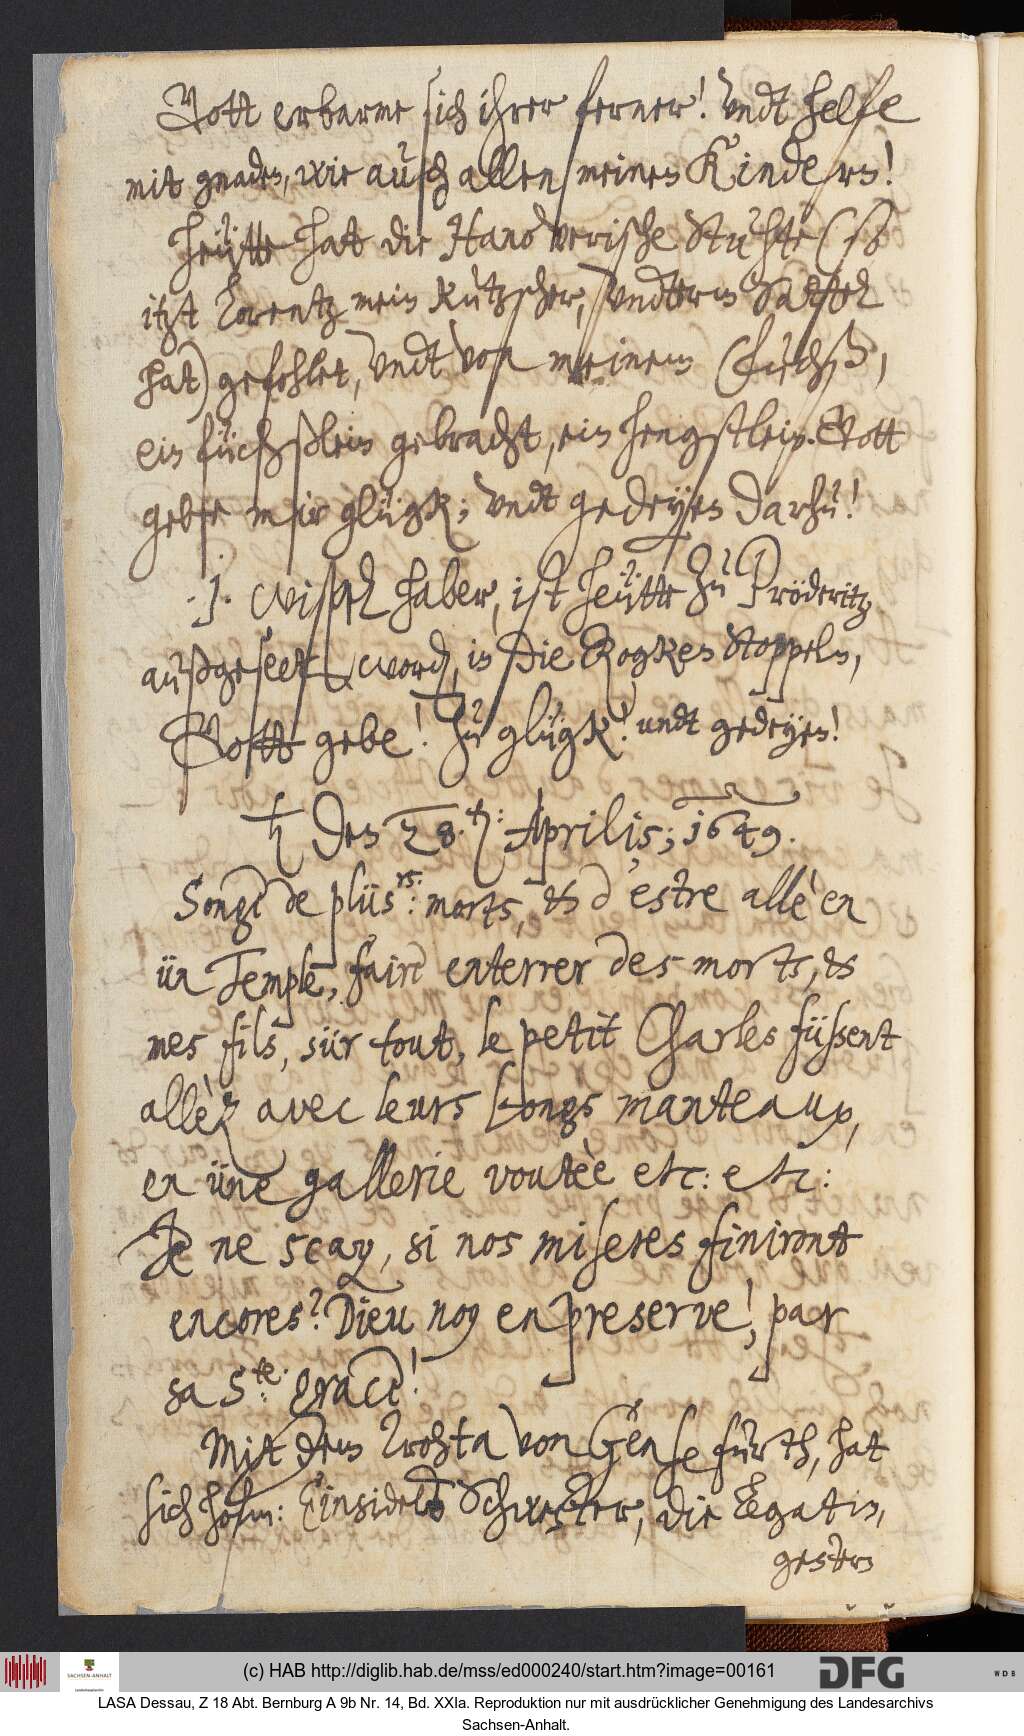 Gott erbarme sich ihrer ferner! Vndt helfe
mit gnaden, wie auch allen meinen Kindern!
Heütte hat die Hanoverische Stuhte (so
itzt Lorentz mein Kutzscher, vndterm Sattel
hat) gefohlet, Vndt von meinem Fuchß,
ein füchßlein gebracht, ein hengstlein. Gott
gebe mir glügk; vndt gedeyen darzu!
.1. Wispel haber, ist heütte zu Pröderitz
außgeseet word, in die Rogken Stoppeln,
Gott gebe! Zu glügk! vndt gedeyen!
♄ den 28.ten: Aprilis; 1649.
Songè de plüsrs: morts, & d'estre allè en
ün Temple, faire enterrer des morts, &
mes fils, sür tout, le petit Charles füssent
allèz avec leurs longs manteaux,
en üne gallerie voutèe etc: etc:
Je ne scay, si nos miseres finiront
encores? Dieu nous en preserve!, par
sa Ste: grace!
Mit dem Trohta von Gensefurth, hat
sich hofm: Einsidels Schwester, die Legatin,
gestern
(c) HAB http://diglib.hab.de/mss/ed000240/start.htm?image=00161
SACHSEN-ANHALT
DFG
WDB
LASA Dessau, Z 18 Abt. Bernburg A 9b Nr. 14, Bd. XXIa. Reproduktion nur mit ausdrücklicher Genehmigung des Landesarchivs
Sachsen-Anhalt.